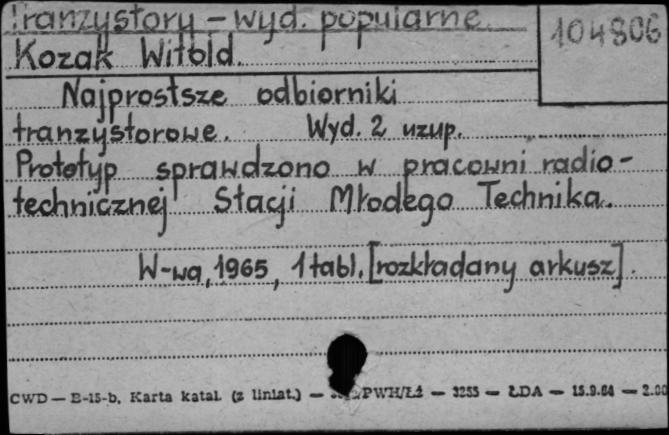 Tranzystory - wyd. popularne.
104806
Kozak Witold.
Najprostsze odbiorniki
tranzystorowe. Wyd. 2 uzup.
Prototyp sprawdzono w pracowni radio-
technicznej Stacji Młodego Technika.
W-wa, 1965, 1 tabl. [rozkładany arkusz].
CWD — E-15-b, Karta katal. (z liniat.) — PWH/Łż — 3255 — ŁDA — 15.9.64 — 2.00